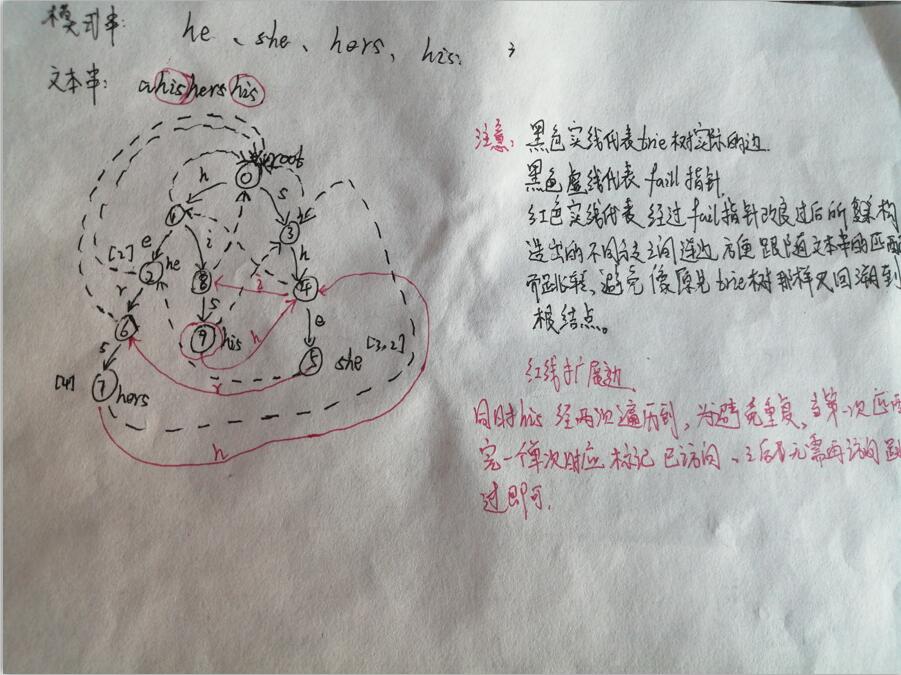 模式串: he、she、hers、his.
文本串: ahishershis
root
0
h
s
1
3
e
i
h
[2]
2
he
8
i
4
r
s
e
6
9
his
h
s
r
5
she
[3,2]
[4]
7
hers
h
注意: 黑色实线代表trie树实际的边.
黑色虚线代表 fail指针.
红色实线代表 经过fail指针改良过后所 构
造出的不同分支之间连边 方便跟随文本串的匹配
而跳转、避免像原先trie树那样又回溯到
根结点。
红线扩展边.
同时his 经两次遍历到, 为避免重复, 当第一次匹
完一个单次时应 标记 已访问、之后 无需再访问 跳
过即可.